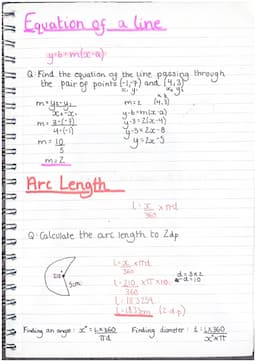 Equation of a line
y-b=m(x-a)
Q: Find the equation of the line passing through
the pair of points (-1,-7) and (4,3)
x₁ y₁ x₂ y₂
m = y₂-y₁
x₂-x₁
m = 3-(-7)
4-(-1)
m = 10
5
m=2
m=2 (4,3)
y-b=m(x-a)
y-3=2(x-4)
y-3=2x-8
y=2x-5
Arc Length
L = x × πd
360
Q: Calculate the arc length to 2dp
210°
5cm
L = x × πd
360
L = 210 × π × 10
360
d=5×2
d=10
L=18.3259...
L=18.33cm (2dp)
Finding an angle: x° = L×360
πd
Finding diameter: d = L×360
x°×π